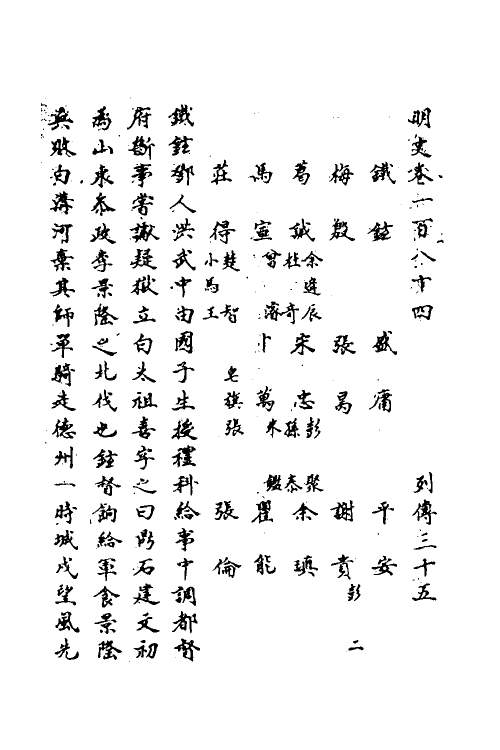 明史卷一百八十四　列傳三十五
鐵鉉　盛庸　平安
梅殷　張昺　謝貴 彭二
葛誠 余逢辰 杜奇　宋忠 彭聚 孫泰　余瑱
馬宣 曾濬　卜萬 朱鑑　瞿能
莊得 楚智 小馬王 皂旗張　張倫
鐵鉉鄧人洪武中由國子生授禮科給事中調都督
府斷事嘗讞疑獄立白太祖喜字之曰鼎石建文初
為山東參政李景隆之北伐也鉉督餉給軍食景隆
兵敗白溝河棄其師單騎走德州一時城戍望風先